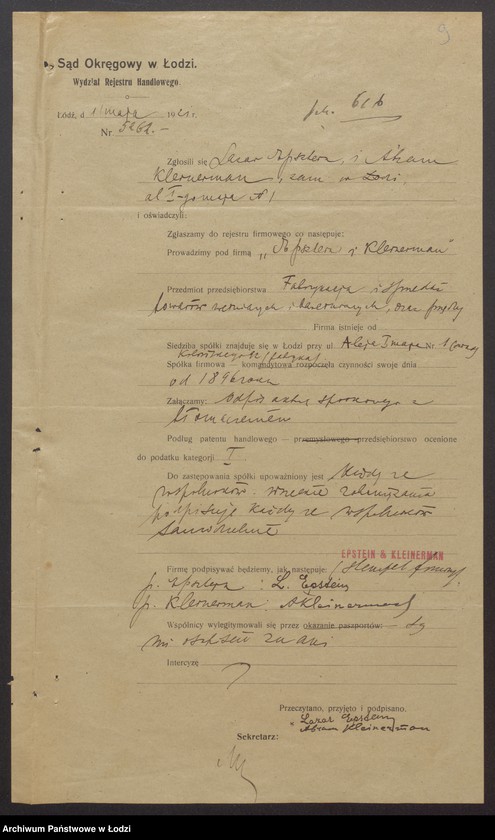 9
Sąd Okręgowy w Łodzi.
Wydział Rejestru Handlowego.
Łódź, d. 11 maja 1921 r.
Nr 5262.-
Zgłosili się Lazar Epsztein i Abram
Klejnerman, zam. w Łodzi,
al. I-go maja № 1
i oświadczyli:
Zgłaszamy do rejestru firmowego co następuje:
Prowadzimy pod firmą „Epsztein i Klejnerman"
Przedmiot przedsiębiorstwa Fabrykacja i sprzedaż
towarów wełnianych i bawełnianych, oraz przędzy
Firma istnieje od
Siedziba spółki znajduje się w Łodzi przy ul. Aleja I maja Nr 1
Spółka firmowa — komandytowa rozpoczęła czynności swoje dnia
od 1896 roku
Załączamy: odpis aktu spółkowego z
tłomaczeniem
Podług patentu handlowego — przemysłowego przedsiębiorstwo ocenione
do podatku kategorji I.
Do zastępowania spółki upoważniony jest każdy ze
wspólników. wszelkie zobowiązania
podpisuje każdy ze wspólników
samodzielnie
EPSTEIN & KLEINERMAN
Firmę podpisywać będziemy, jak następuje: / stempel firmy /
p. Epsztein: L. Epstein
p. Klejnerman: A Kleinerman
Wspólnicy wylegitymowali się przez okazanie paszportów: — są
mi osobiście znani
Intercyzę
Przeczytano, przyjęto i podpisano.
Lazar Epstein
Abram Kleinerman
Sekretarz:
Archiwum Państwowe w Łodzi